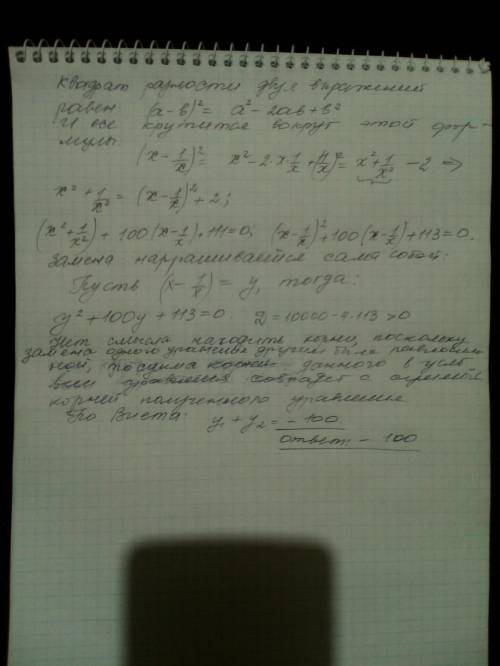 Квадрат разности двух выражений
равен: (a-b)² = a² - 2ab + b²
И все крутится вокруг этой фор-
мулы:
(x - 1/x)² = x² - 2·x·1/x + (1/x)² = x² + 1/x² - 2 ⇒
x² + 1/x² = (x - 1/x)² + 2;
(x² + 1/x²) + 100(x - 1/x) + 111 = 0; (x - 1/x)² + 100(x - 1/x) + 113 = 0.
Замена напрашивается сама собой:
Пусть (x - 1/x) = y, тогда:
y² + 100y + 113 = 0. D = 10000 - 4·113 > 0
Нет смысла находить корни, поскольку
замена одного уравнения другим была
то сумма данного в усло-
вии совпадет с
корней полученного уравнения
По Виета: y₁ + y₂ = -100.
ответ: - 100